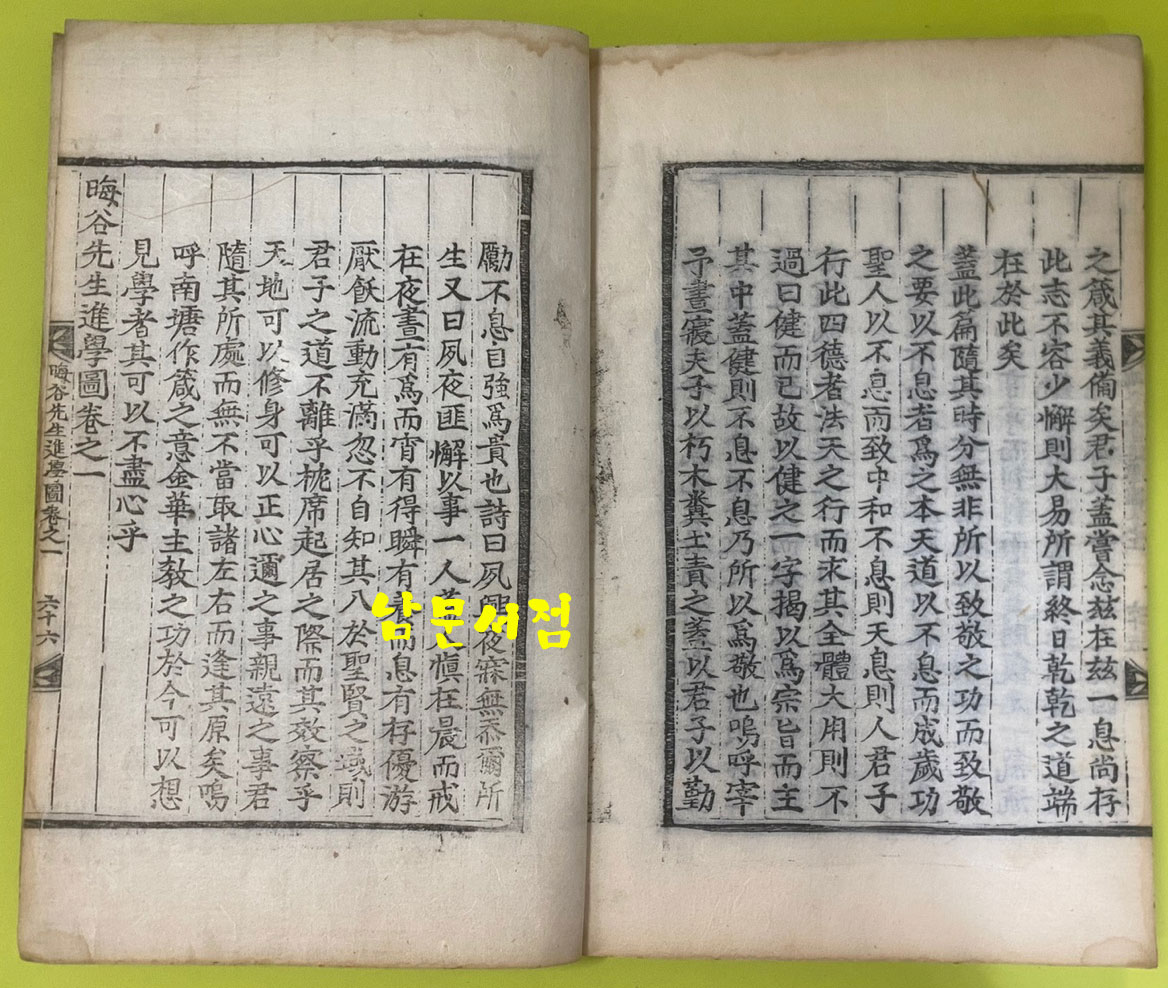 之箴其義備矣君子蓋嘗念玆在玆一息尚存
此志不容少懈則大易所謂終日乾乾之道端
在於此矣
蓋此篇隨其時分無非所以致敬之功而致敬
之要以不息者爲之本天道以不息而成歲功
聖人以不息而致中和不息則天息則人君子
行此四德者法天之行而求其全體大用則不
過曰健而已故以健之一字揭以爲宗旨而主
其中蓋健則不息不息乃所以爲敬也嗚呼宰
予晝寢夫子以朽木糞土責之蓋以君子以勤
勵不息自強爲貴也詩曰夙興夜寐無忝爾所
生又曰夙夜匪懈以事一人蓋愼在晨而戒
在夜晝有爲而宵有得瞬有養而息有存優游
厭飫流動充滿忽不自知其八於聖賢之域則
君子之道不離乎枕席起居之際而其效察乎
天地可以修身可以正心邇之事親遠之事君
隨其所處而無不當取諸左右而逢其原矣嗚
呼南塘作箴之意金華主敎之功於今可以想
見學者其可以不盡心乎
晦谷先生進學圖卷之一
晦谷先生進學圖卷之一 六十六
남문서점